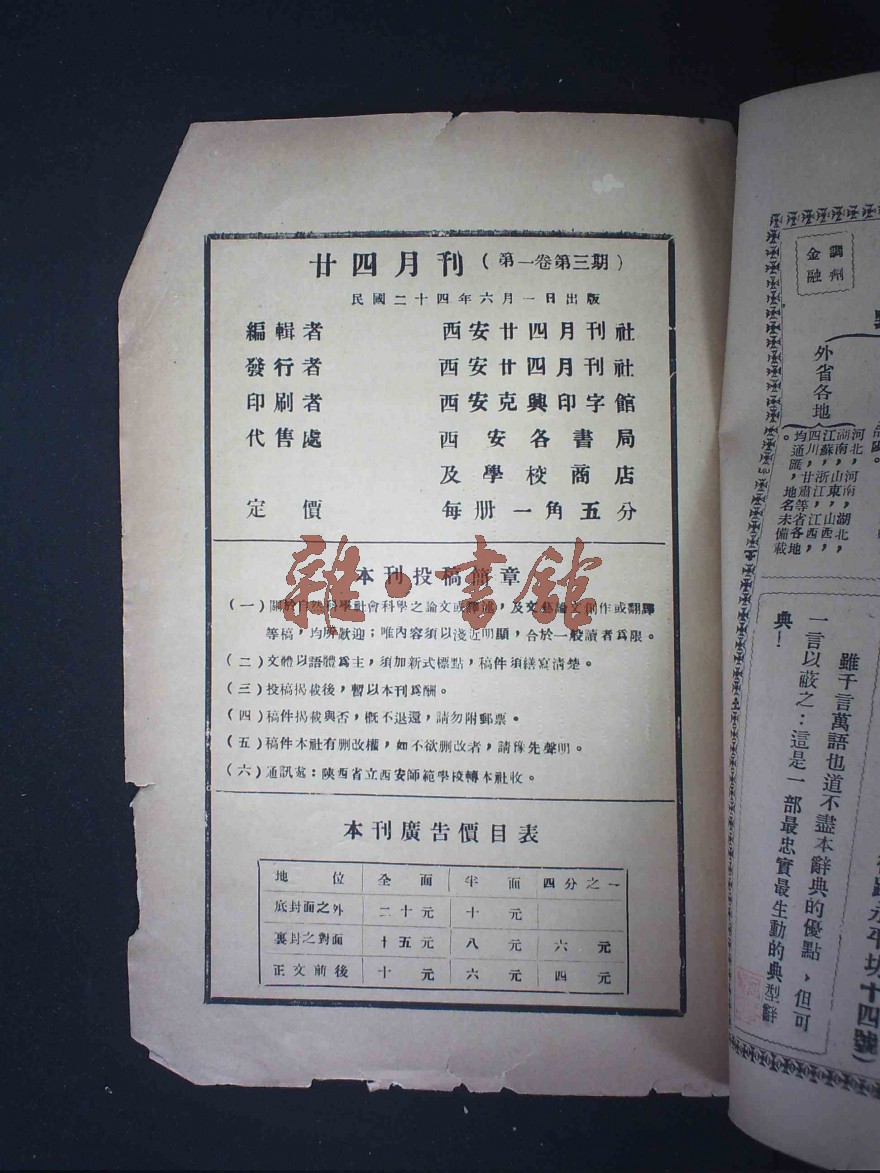 廿四月刊(第一卷第三期)
民國二十四年六月一日出版
編輯者 西安廿四月刊社
發行者 西安廿四月刊社
印刷者 西安克興印字館
代售處 西安各書局
及學校商店
定價 每册一角五分
雜·書館
本刊投稿簡章
(一)關於自然科學社會科學之論文或譯述,及文藝論文創作或翻譯
等稿,均所歡迎;唯內容須以淺近明顯,合於一般讀者爲限。
(二)文體以語體爲主,須加新式標點,稿件須繕寫清楚。
(三)投稿揭載後,暫以本刊爲酬。
(四)稿件揭載與否,概不退還,請勿附郵票。
(五)稿件本社有删改權,如不欲删改者,請豫先聲明。
(六)通訊處:陝西省立西安師範學校轉本社收。
本刊廣告價目表
地位 全面 半面 四分之一
底封面之外 二十元 十元
裏封之對面 十五元 八元 六元
正文前後 十元 六元 四元
調劑
金融
外省各地
河北,河南,湖北,
湖南,山東,山西,
江蘇,浙江,江西,
四川,甘肅等省各地
均通匯,地名未備載
。
雖千言萬語也道不盡本辭典的優點,但可
一言以蔽之:這是一部最忠實最生動的典型辭
典!
永平坊十四號)